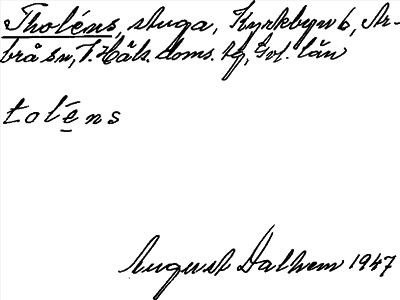 Tholéns, stuga, Kyrkbyn 6, Ar-
brå sn, V. Häls. doms. tg, Gvl. län
tolḗns
August Dalhem 1947